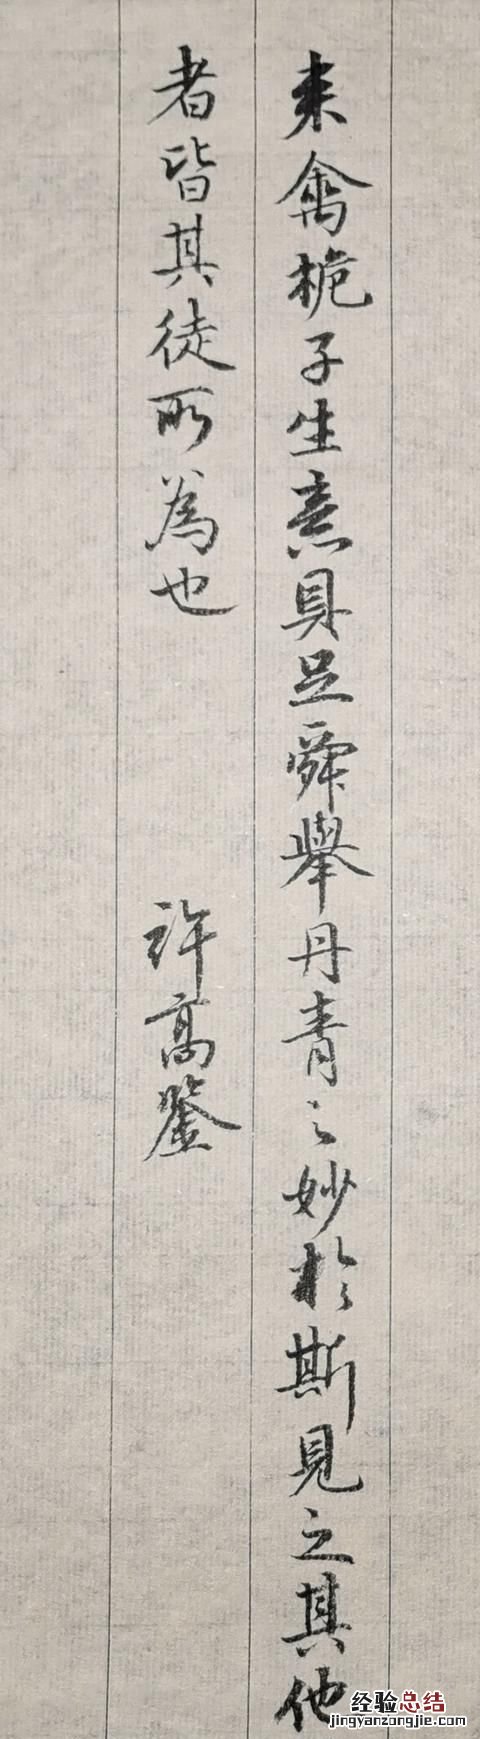 来禽栀子生意具足舜舉丹青之妙於斯見之其他
者皆其徒所為也
許高鉴
经验总结
jingyanzongjie.com